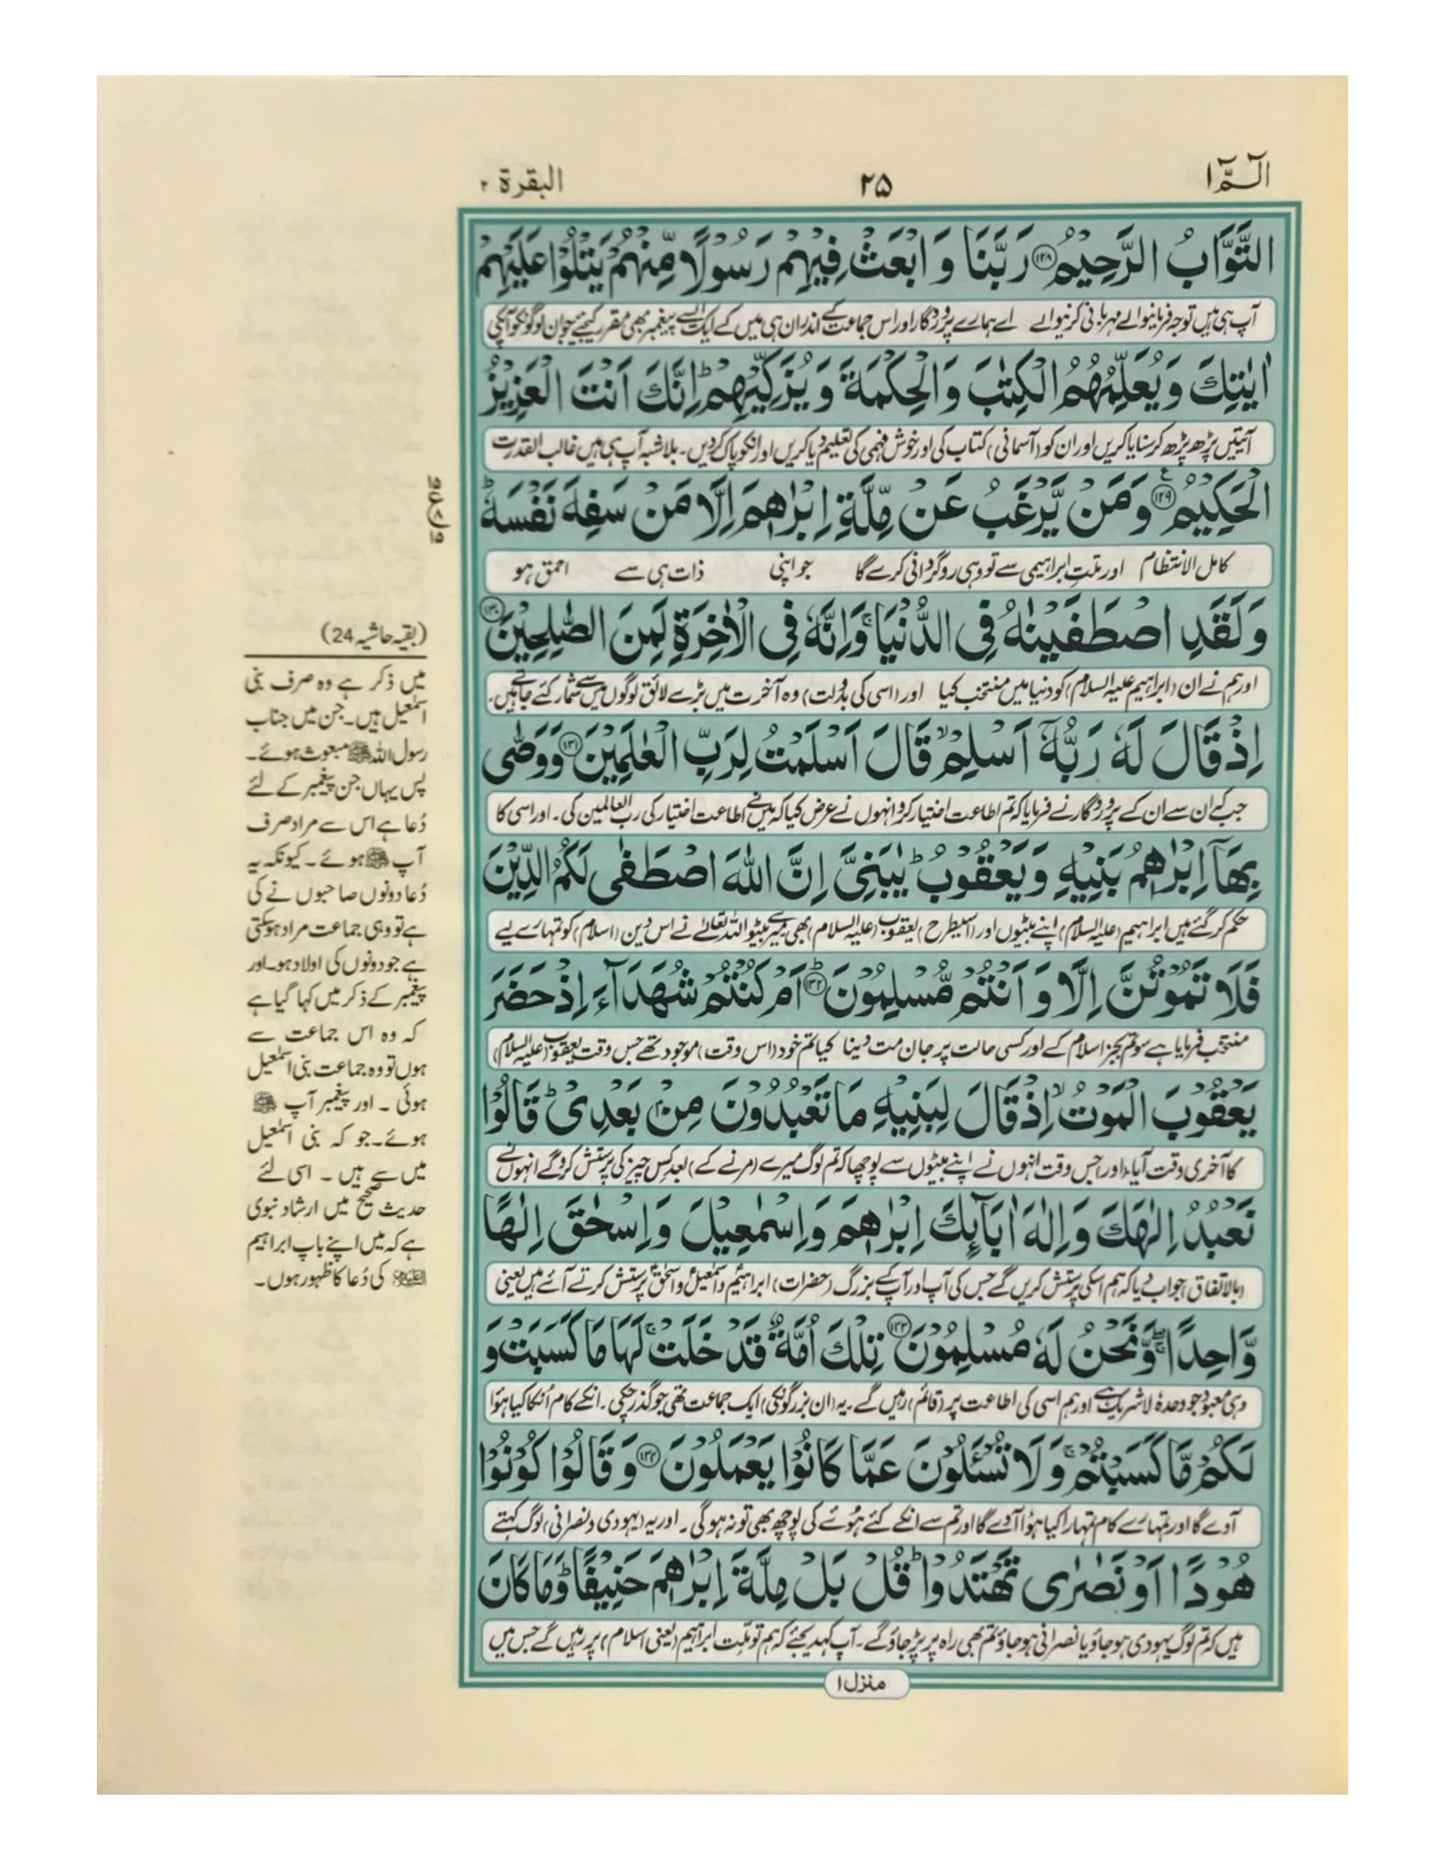 الٓمّٓ ۱
۲۵
البقرة ۲
التَّوَّابُ الرَّحِيْمُ ﴿۱۲۸﴾ رَبَّنَا وَابْعَثْ فِيْهِمْ رَسُوْلًا مِّنْهُمْ يَتْلُوْا عَلَيْهِمْ
آپ ہی ہیں توجہ فرمانیوالے مہربانی کرنیوالے اے ہمارے پروردگار اور اس جماعت کے اندر ان ہی میں کے ایک ایسے پیغمبر بھی مقرر کیجیے جو ان لوگونکو آپکی
اٰيٰتِكَ وَيُعَلِّمُهُمُ الْكِتٰبَ وَالْحِكْمَةَ وَيُزَكِّيْهِمْ ؕ اِنَّكَ اَنْتَ الْعَزِيْزُ
آیتیں پڑھ پڑھ کر سنایا کریں اور ان کو (آسمانی) کتاب کی اور خوش فہمی کی تعلیم دیا کریں اور انکو پاک کر دیں۔ بلاشبہ آپ ہی ہیں غالب القدرت
الْحَكِيْمُ ﴿۱۲۹﴾ ع وَمَنْ يَّرْغَبُ عَنْ مِّلَّةِ اِبْرٰهٖمَ اِلَّا مَنْ سَفِهَ نَفْسَهٗ ؕ
کامل الانتظام اور ملتِ ابراہیمی سے تو وہی روگردانی کرے گا جو اپنی ذات ہی سے احمق ہو
وَلَقَدِ اصْطَفَيْنٰهُ فِى الدُّنْيَا ۚ وَاِنَّهٗ فِى الْاٰخِرَةِ لَمِنَ الصّٰلِحِيْنَ ﴿۱۳۰﴾
اور ہم نے ان (ابراہیم علیہ السلام) کو دنیا میں منتخب کیا اور (اسی کی بدولت) وہ آخرت میں بڑے لائق لوگوں میں سے شمار کئے جاتے ہیں۔
اِذْ قَالَ لَهٗ رَبُّهٗۤ اَسْلِمْ ۙ قَالَ اَسْلَمْتُ لِرَبِّ الْعٰلَمِيْنَ ﴿۱۳۱﴾ وَوَصّٰى
جب کہ ان سے ان کے پروردگار نے فرمایا کہ تم اطاعت اختیار کرو انہوں نے عرض کیا کہ میں نے اطاعت اختیار کی رب العالمین کی۔ اور اسی کا
بِهَاۤ اِبْرٰهٖمُ بَنِيْهِ وَيَعْقُوْبُ ؕ يٰبَنِىَّ اِنَّ اللّٰهَ اصْطَفٰى لَكُمُ الدِّيْنَ
حکم کر گئے ہیں ابراہیم (علیہ السلام) اپنے بیٹوں اور (اسیطرح) یعقوب (علیہ السلام) بھی میرے بیٹو اللہ تعالےٰ نے اس دین (اسلام) کو تمہارے لیے
فَلَا تَمُوْتُنَّ اِلَّا وَاَنْتُمْ مُّسْلِمُوْنَ ﴿۱۳۲﴾ ؕ اَمْ كُنْتُمْ شُهَدَآءَ اِذْ حَضَرَ
منتخب فرمایا ہے سو تم بجز اسلام کے اور کسی حالت پر جان مت دینا کیا تم خود (اس وقت) موجود تھے جس وقت یعقوب (علیہ السلام)
يَعْقُوْبَ الْمَوْتُ ۙ اِذْ قَالَ لِبَنِيْهِ مَا تَعْبُدُوْنَ مِنْۢ بَعْدِىْ ؕ قَالُوْا
کا آخری وقت آیا (اور) جس وقت انہوں نے اپنے بیٹوں سے پوچھا کہ تم لوگ میرے (مرنے کے) بعد کس چیز کی پرستش کرو گے انہوں نے
نَعْبُدُ اِلٰهَكَ وَاِلٰهَ اٰبَآئِكَ اِبْرٰهٖمَ وَاِسْمٰعِيْلَ وَاِسْحٰقَ اِلٰهًا
(بالاتفاق) جواب دیا کہ ہم اسکی پرستش کریں گے جس کی آپ اور آپکے بزرگ (حضرات) ابراہیمؑ و اسمٰعیلؑ و اسحٰقؑ پرستش کرتے آئے ہیں یعنی
وَّاحِدًا ۖۚ وَّنَحْنُ لَهٗ مُسْلِمُوْنَ ﴿۱۳۳﴾ تِلْكَ اُمَّةٌ قَدْ خَلَتْ ۚ لَهَا مَا كَسَبَتْ وَ
وہی معبود جو وحدہٗ لاشریک ہے اور ہم اسی کی اطاعت پر (قائم) رہیں گے۔ یہ (ان بزرگونکی) ایک جماعت تھی جو گذر چکی۔ انکے کام اُنکا کیا ہوا
لَكُمْ مَّا كَسَبْتُمْ ۚ وَلَا تُسْـَٔلُوْنَ عَمَّا كَانُوْا يَعْمَلُوْنَ ﴿۱۳۴﴾ وَقَالُوْا كُوْنُوْا
آوے گا اور تمہارے کام تمہارا کیا ہوا آوے گا اور تم سے انکے کئے ہوئے کی پوچھ بھی تو نہ ہوگی۔ اور یہ (یہودی و نصرانی) لوگ کہتے
هُوْدًا اَوْ نَصٰرٰى تَهْتَدُوْا ؕ قُلْ بَلْ مِلَّةَ اِبْرٰهٖمَ حَنِيْفًا ؕ وَمَا كَانَ
ہیں کہ تم لوگ یہودی ہو جاؤ یا نصرانی ہو جاؤ تم بھی راہ پر پڑ جاؤ گے۔ آپ کہہ دیجئے کہ ہم تو ملتِ ابراہیم (یعنی اسلام) پر رہیں گے جس میں
منزل ۱
(بقیہ حاشیہ 24)
میں ذکر ہے وہ صرف بنی
اسمٰعیل ہیں۔ جن میں جناب
رسول اللہ ﷺ مبعوث ہوئے۔
پس یہاں جن پیغمبر کے لئے
دُعا ہے اس سے مراد صرف
آپ ﷺ ہوئے۔ کیونکہ یہ
دُعا دونوں صاحبوں نے کی
ہے تو وہی جماعت مراد ہوسکتی
ہے جو دونوں کی اولاد ہو۔ اور
پیغمبر کے ذکر میں کہا گیا ہے
کہ وہ اس جماعت سے
ہوں تو وہ جماعت بنی اسمٰعیل
ہوئی۔ اور پیغمبر آپ ﷺ
ہوئے۔ جو کہ بنی اسمٰعیل
میں سے ہیں۔ اسی لئے
حدیث صحیح میں ارشاد نبوی
ہے کہ میں اپنے باپ ابراہیم
علیہ السلام کی دُعا کا ظہور ہوں۔